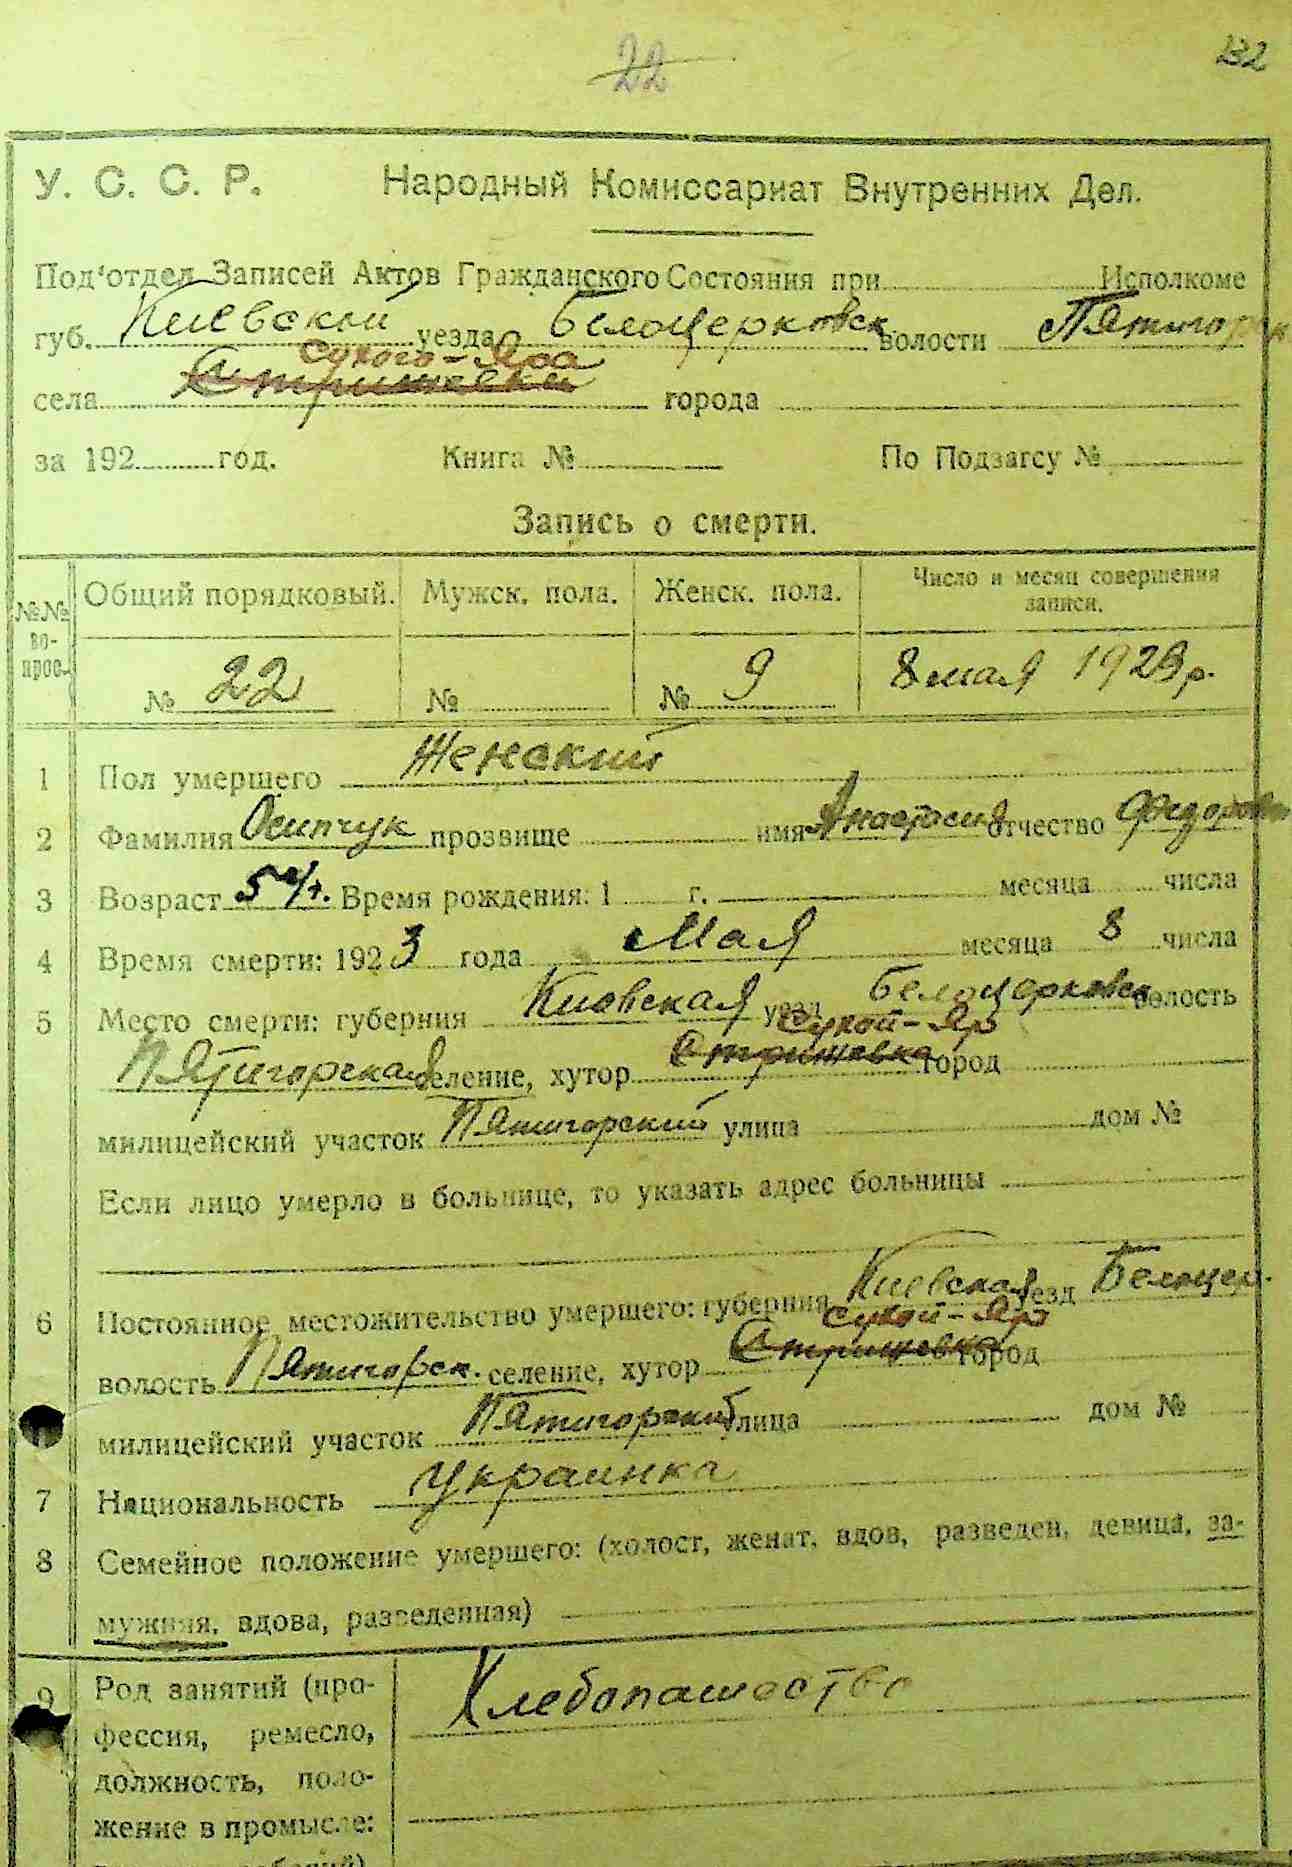 22
132
У. С. С. Р. Народный Комиссариат Внутренних Дел.
Под'отдел Записей Актов Гражданского Состояния при Исполкоме
губ. Киевской уезда Белоцерковск. волости Пятигорск
Сухого-Яра
села Стрижевки города
за 192 год. Книга № По Подзагсу №
Запись о смерти.
№№ вопрос. Общий порядковый. Мужск. пола. Женск. пола. Число и месяц совершения записи.
№ 22 № № 9 8 мая 1923 р.
1 Пол умершего Женский
2 Фамилия Осипчук прозвище имя Анастасия отчество Федоровн
3 Возраст Время рождения: 1 г. месяца числа
4 Время смерти: 1923 года Мая месяца 8 числа
5 Место смерти: губерния Киевская уезд Белоцерковск волость
Сухой-Яр
Пятигорская селение, хутор Стрижевка город
милицейский участок Пятигорский улица дом №
Если лицо умерло в больнице, то указать адрес больницы
6 Постоянное местожительство умершего: губерния Киевская уезд Белоцер.
Сухой-Яр
волость Пятигорск. селение, хутор Стрижевка город
милицейский участок Пятигорский улица дом №
7 Национальность Украинка
8 Семейное положение умершего: (холост, женат, вдов, разведен, девица, за-
мужняя, вдова, разведенная)
9 Род занятий (про- Хлебопашество
фессия, ремесло,
должность, поло-
жение в промысле: